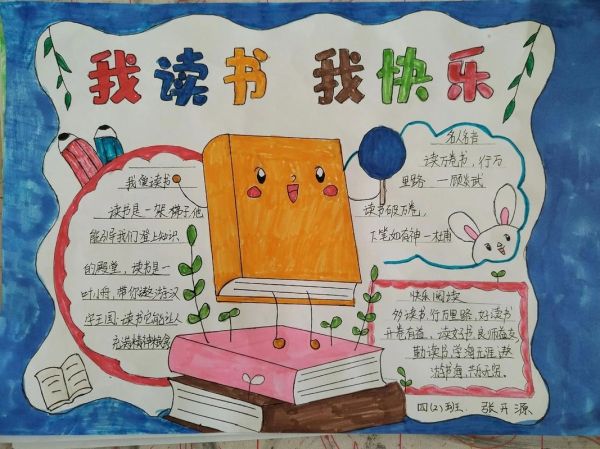 我读书 我快乐
我爱读书
读书是一架梯子,他
能引导我们登上知识
的殿堂，读书是一
叶小舟，带你遨游汉
字王国;读书它能让人
充满精神粮食
名人名言
读万卷书，行万
里路 —顾炎武
读书破万卷，
下笔如有神—杜甫
快乐阅读
多读书,行万里路,好读书
开卷有益，读好书,良师益友
勤读书,学海无涯,遨
游书海,其乐无穷.
四(2)班. 张开源